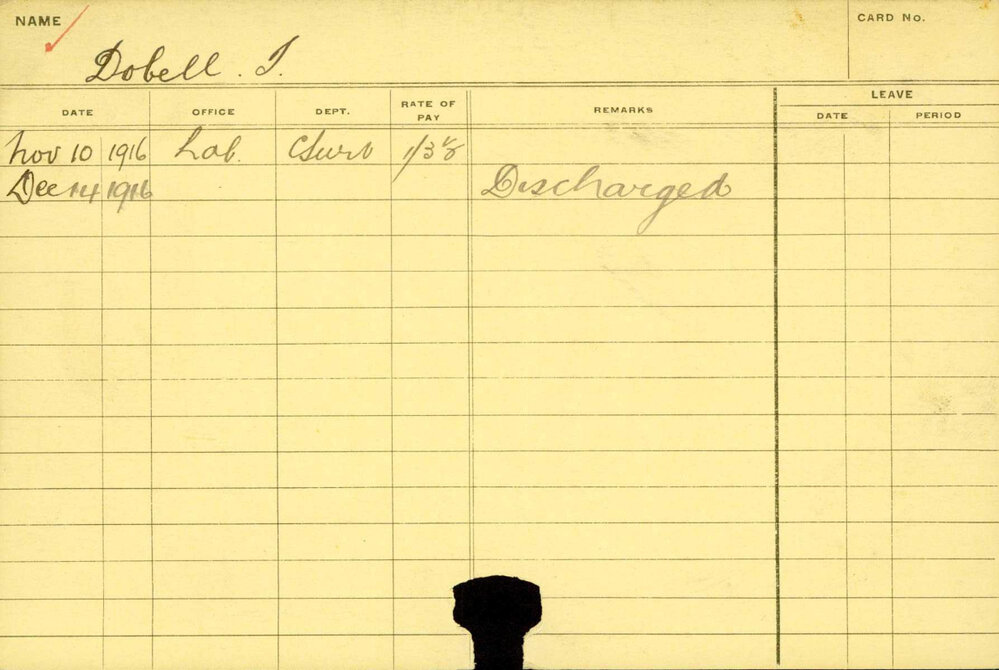 NAME
CARD No.
Dobell. I.
DATE OFFICE DEPT. RATE OF PAY REMARKS LEAVE
DATE PERIOD
Nov 10 1916 Lab. 1/3 1/8
Dec 14 1916 Discharged